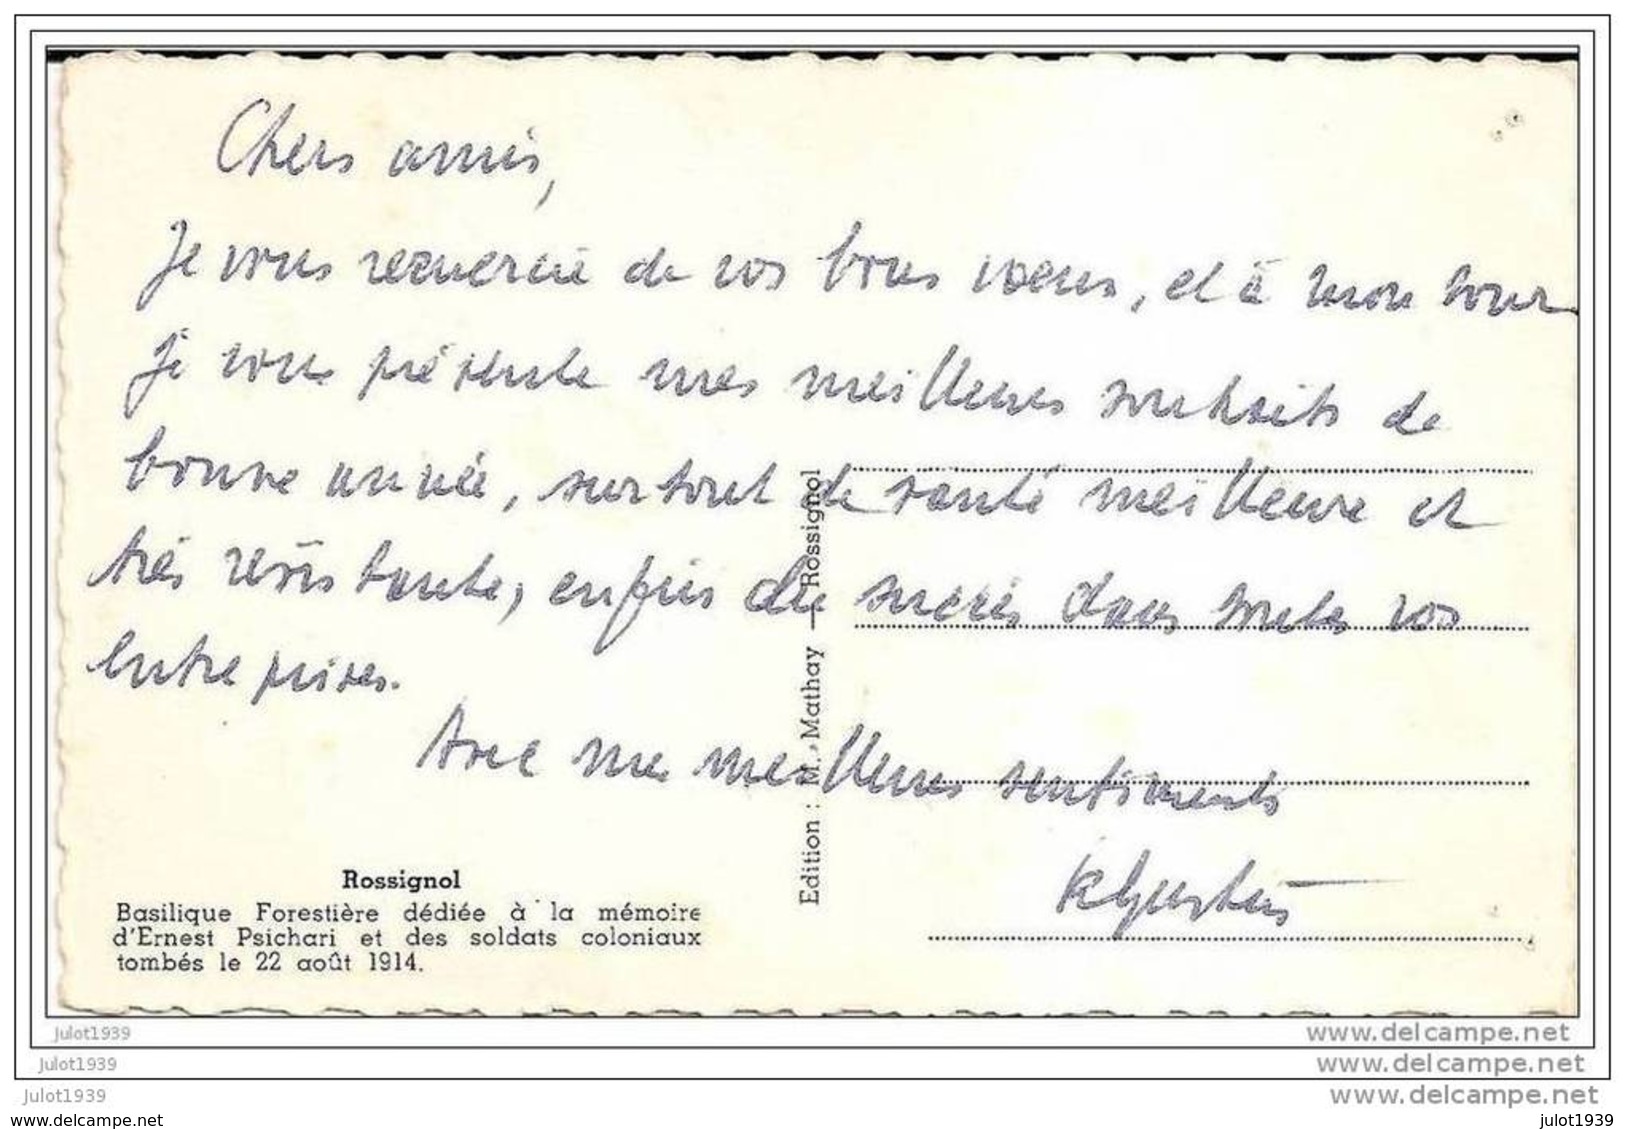 Chers amis,
Je vous remercie de vos bons voeux, et à mon tour
je vous présente mes meilleurs souhaits de
bonne année, surtout de santé meilleure et
très résistante, enfin du succès dans toutes vos
entreprises.
Avec mes meilleurs sentiments
Edition : M. Mathay — Rossignol
Rossignol
Basilique Forestière dédiée à la mémoire
d'Ernest Psichari et des soldats coloniaux
tombés le 22 août 1914.
julot1939
www.delcampe.net
julot1939
www.delcampe.net
julot1939
www.delcampe.net
www.delcampe.net
julot1939